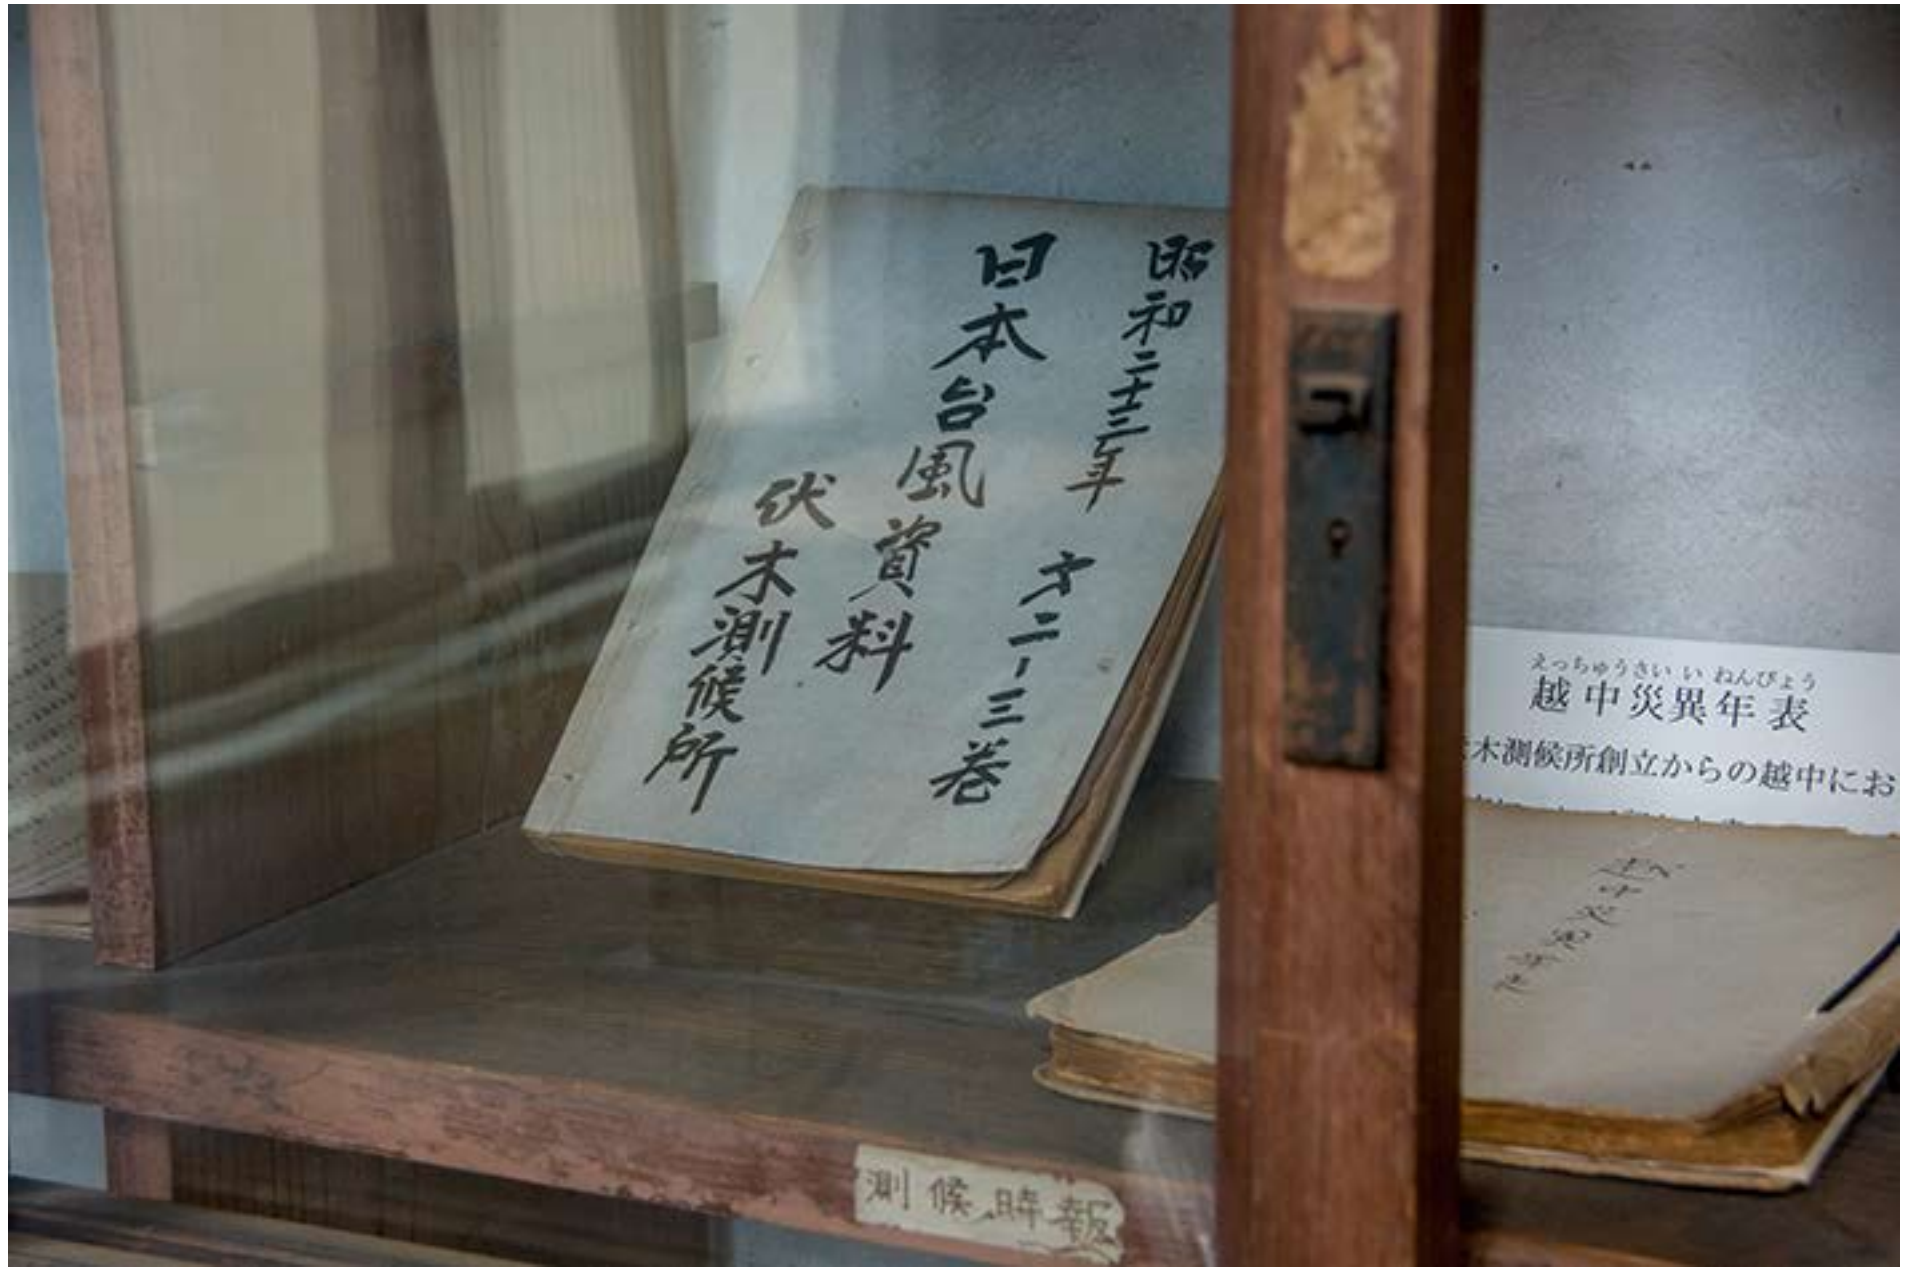 昭和二十三年 才二-三巻
日本台風資料
伏木測候所
えっちゅうさいいねんぴょう
越中災異年表
木測候所創立からの越中にお
測候時報